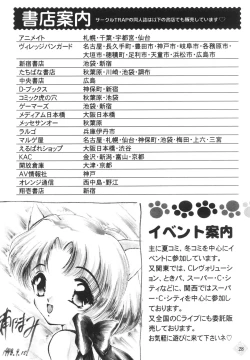 書店案内
サークルTRAPの同人誌は以下の書店でも販売しています♡
アニメイト 札幌・千葉・宇都宮・仙台
ヴィレッジバンガード 名古屋・長久手町・豊田市・神戸市・岐阜市・各務原市・
大垣市・穂積町・足利市・天童市・浜松市・広島市
新宿書店 池袋・新宿
たちばな書店 秋葉原・川崎・池袋・調布
中央書店 広島
D-ブックス 神保町・新宿
コミック虎の穴 秋葉原
ゲーマーズ 池袋・新宿
メディアム日本橋 大阪日本橋
メッセサンオー 秋葉原
ラルゴ 兵庫伊丹市
マルゲ屋 名古屋・仙台・神保町・池袋・梅田・上六・三宮
えるぱれショップ 大阪日本橋・渋谷
KAC 金沢・新潟・富山・京都
開放倉庫 大津・京都
AV情報社 神戸
オレンジ通信 西中島・野江
翔君書店 新宿
イベント案内
主に夏コミ、冬コミを中心にイ
ベントに参加しています。
又関東では、Cレヴォリューシ
ョン、ときパ、スーパー・C・シ
ティなどに、関西ではスーパ
ー・C・シティを中心に参加し
ております。
又全国のCライブにも委託販
売しております。
お気軽に遊びに来て下さいネ♡
28